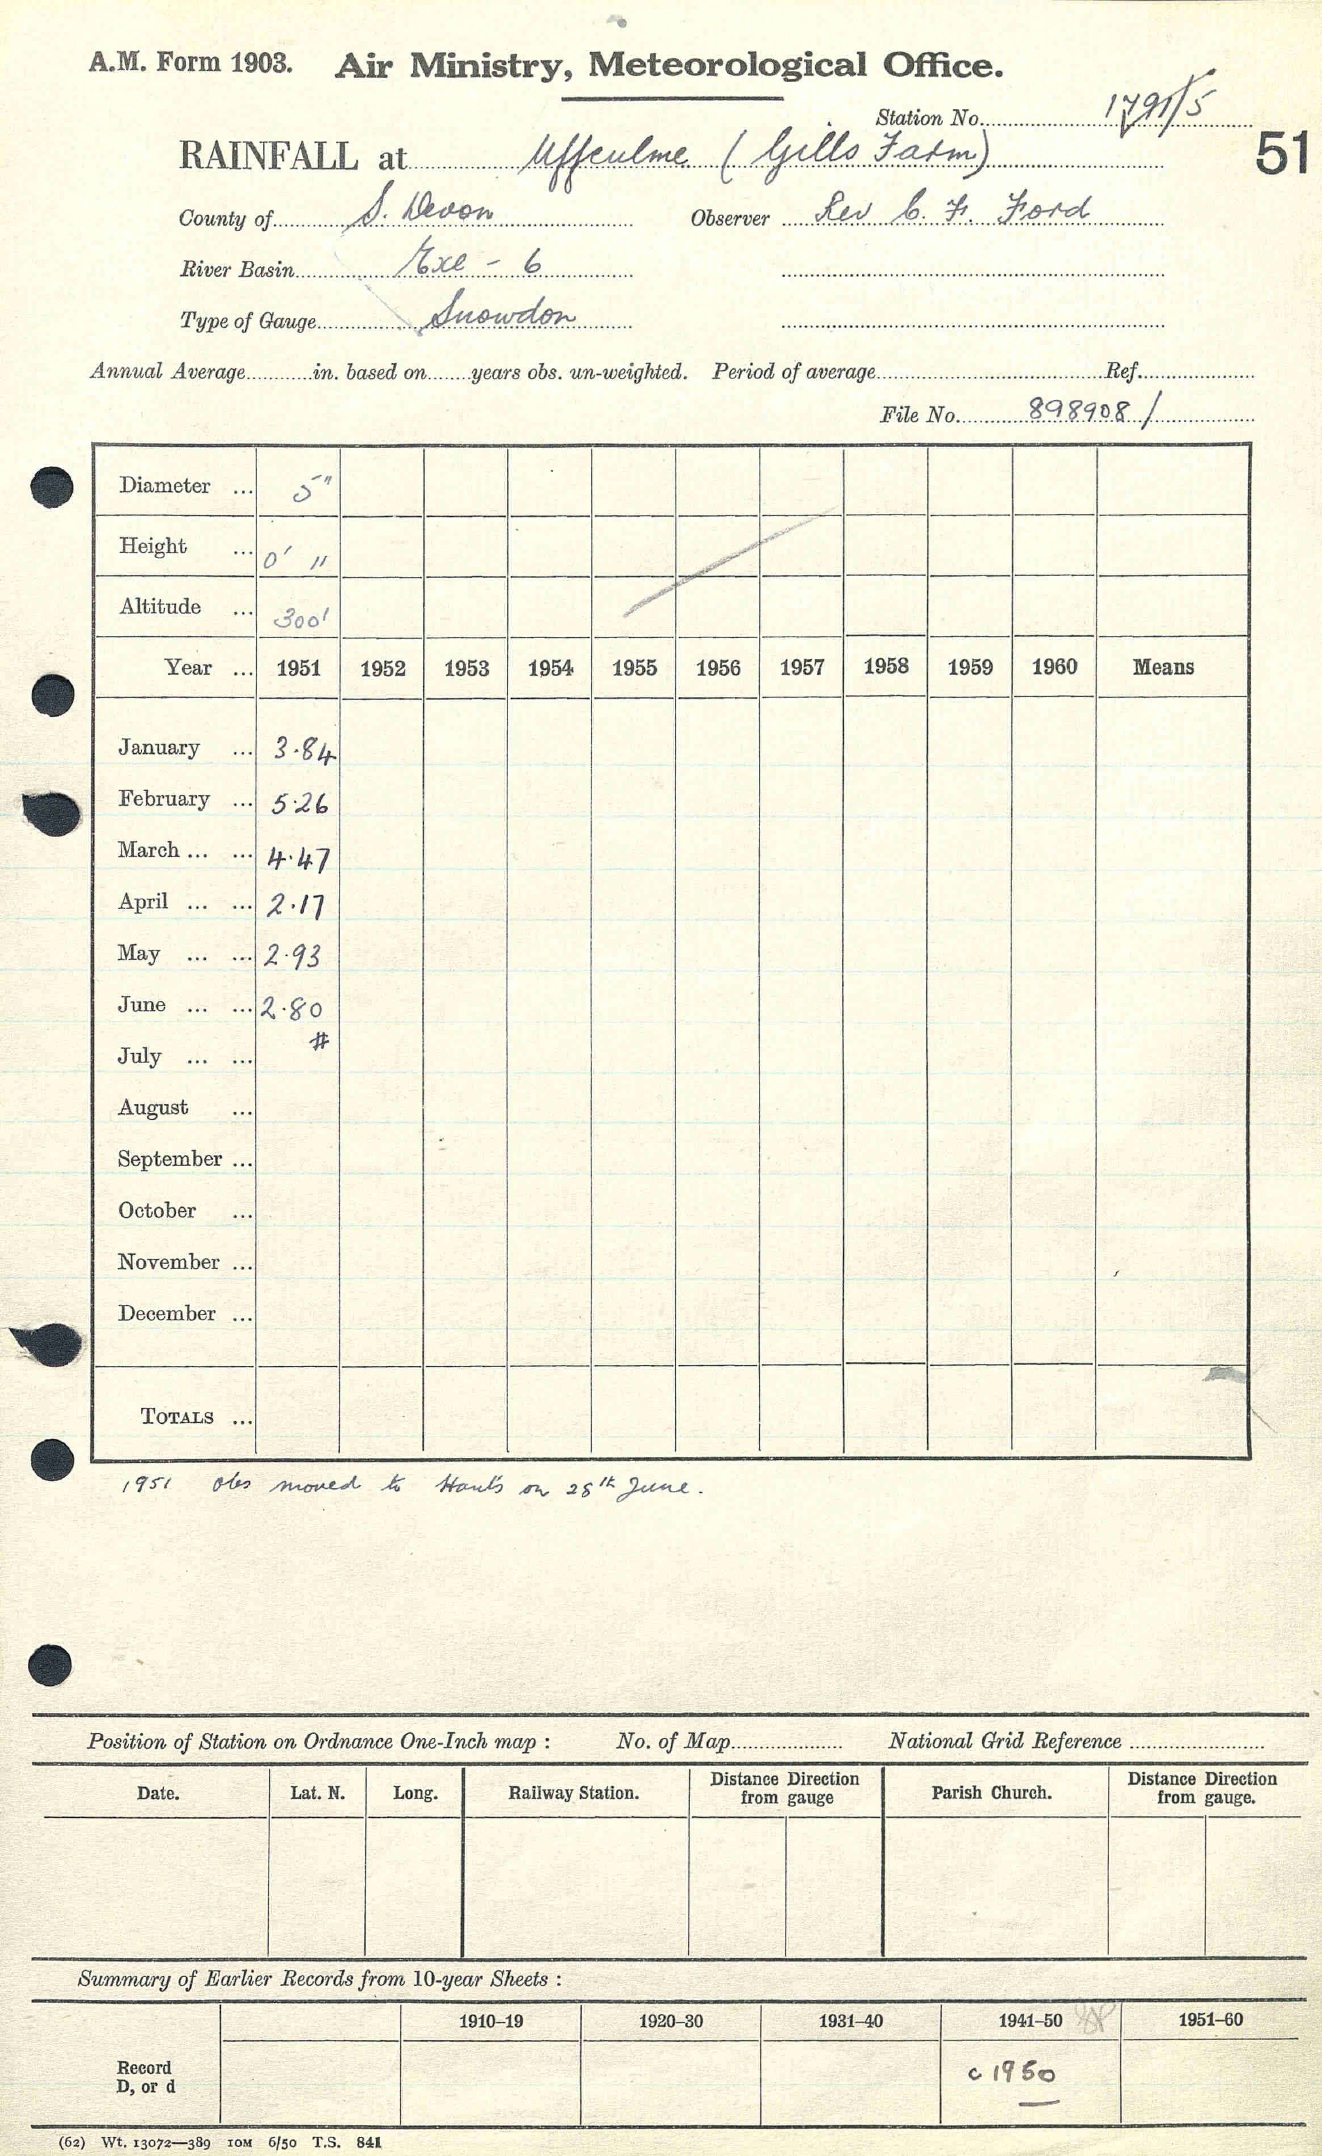 A.M. Form 1903. Air Ministry, Meteorological Office.
Station No. 1791/5
RAINFALL at Uffculme (Gills Farm)
51
County of S. Devon Observer Rev C. F. Ford
River Basin Exe - 6
Type of Gauge Snowdon
Annual Average in. based on years obs. un-weighted. Period of average Ref.
File No. 898908 /
Diameter ... 5"
Height ... 0' "
Altitude ... 300'
Year ... 1951 1952 1953 1954 1955 1956 1957 1958 1959 1960 Means
January ... 3.84
February ... 5.26
March ... ... 4.47
April ... ... 2.17
May ... ... 2.93
June ... ... 2.80
#
July ... ...
August ...
September ...
October ...
November ...
December ...
TOTALS ...
1951 Obs moved to Hants on 28th June.
Position of Station on Ordnance One-Inch map : No. of Map National Grid Reference
Date. Lat. N. Long. Railway Station. Distance Direction from gauge Parish Church. Distance Direction from gauge.
Summary of Earlier Records from 10-year Sheets :
1910–19 1920–30 1931–40 1941–50 1951–60
Record
D, or d
c 1950
(62) Wt. 13072—389 10M 6/50 T.S. 841